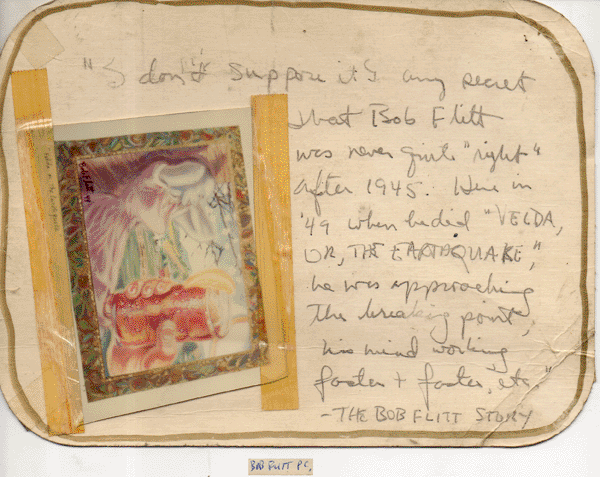 "I don't suppose it's any secret
that Bob Flitt
was never quite "right"
after 1945. Here in
'49 when he did "VELDA,
OR, THE EARTHQUAKE,"
he was approaching
the breaking point,
his mind working
faster + faster, etc"
- THE BOB FLITT STORY
BOB FLITT P.C.